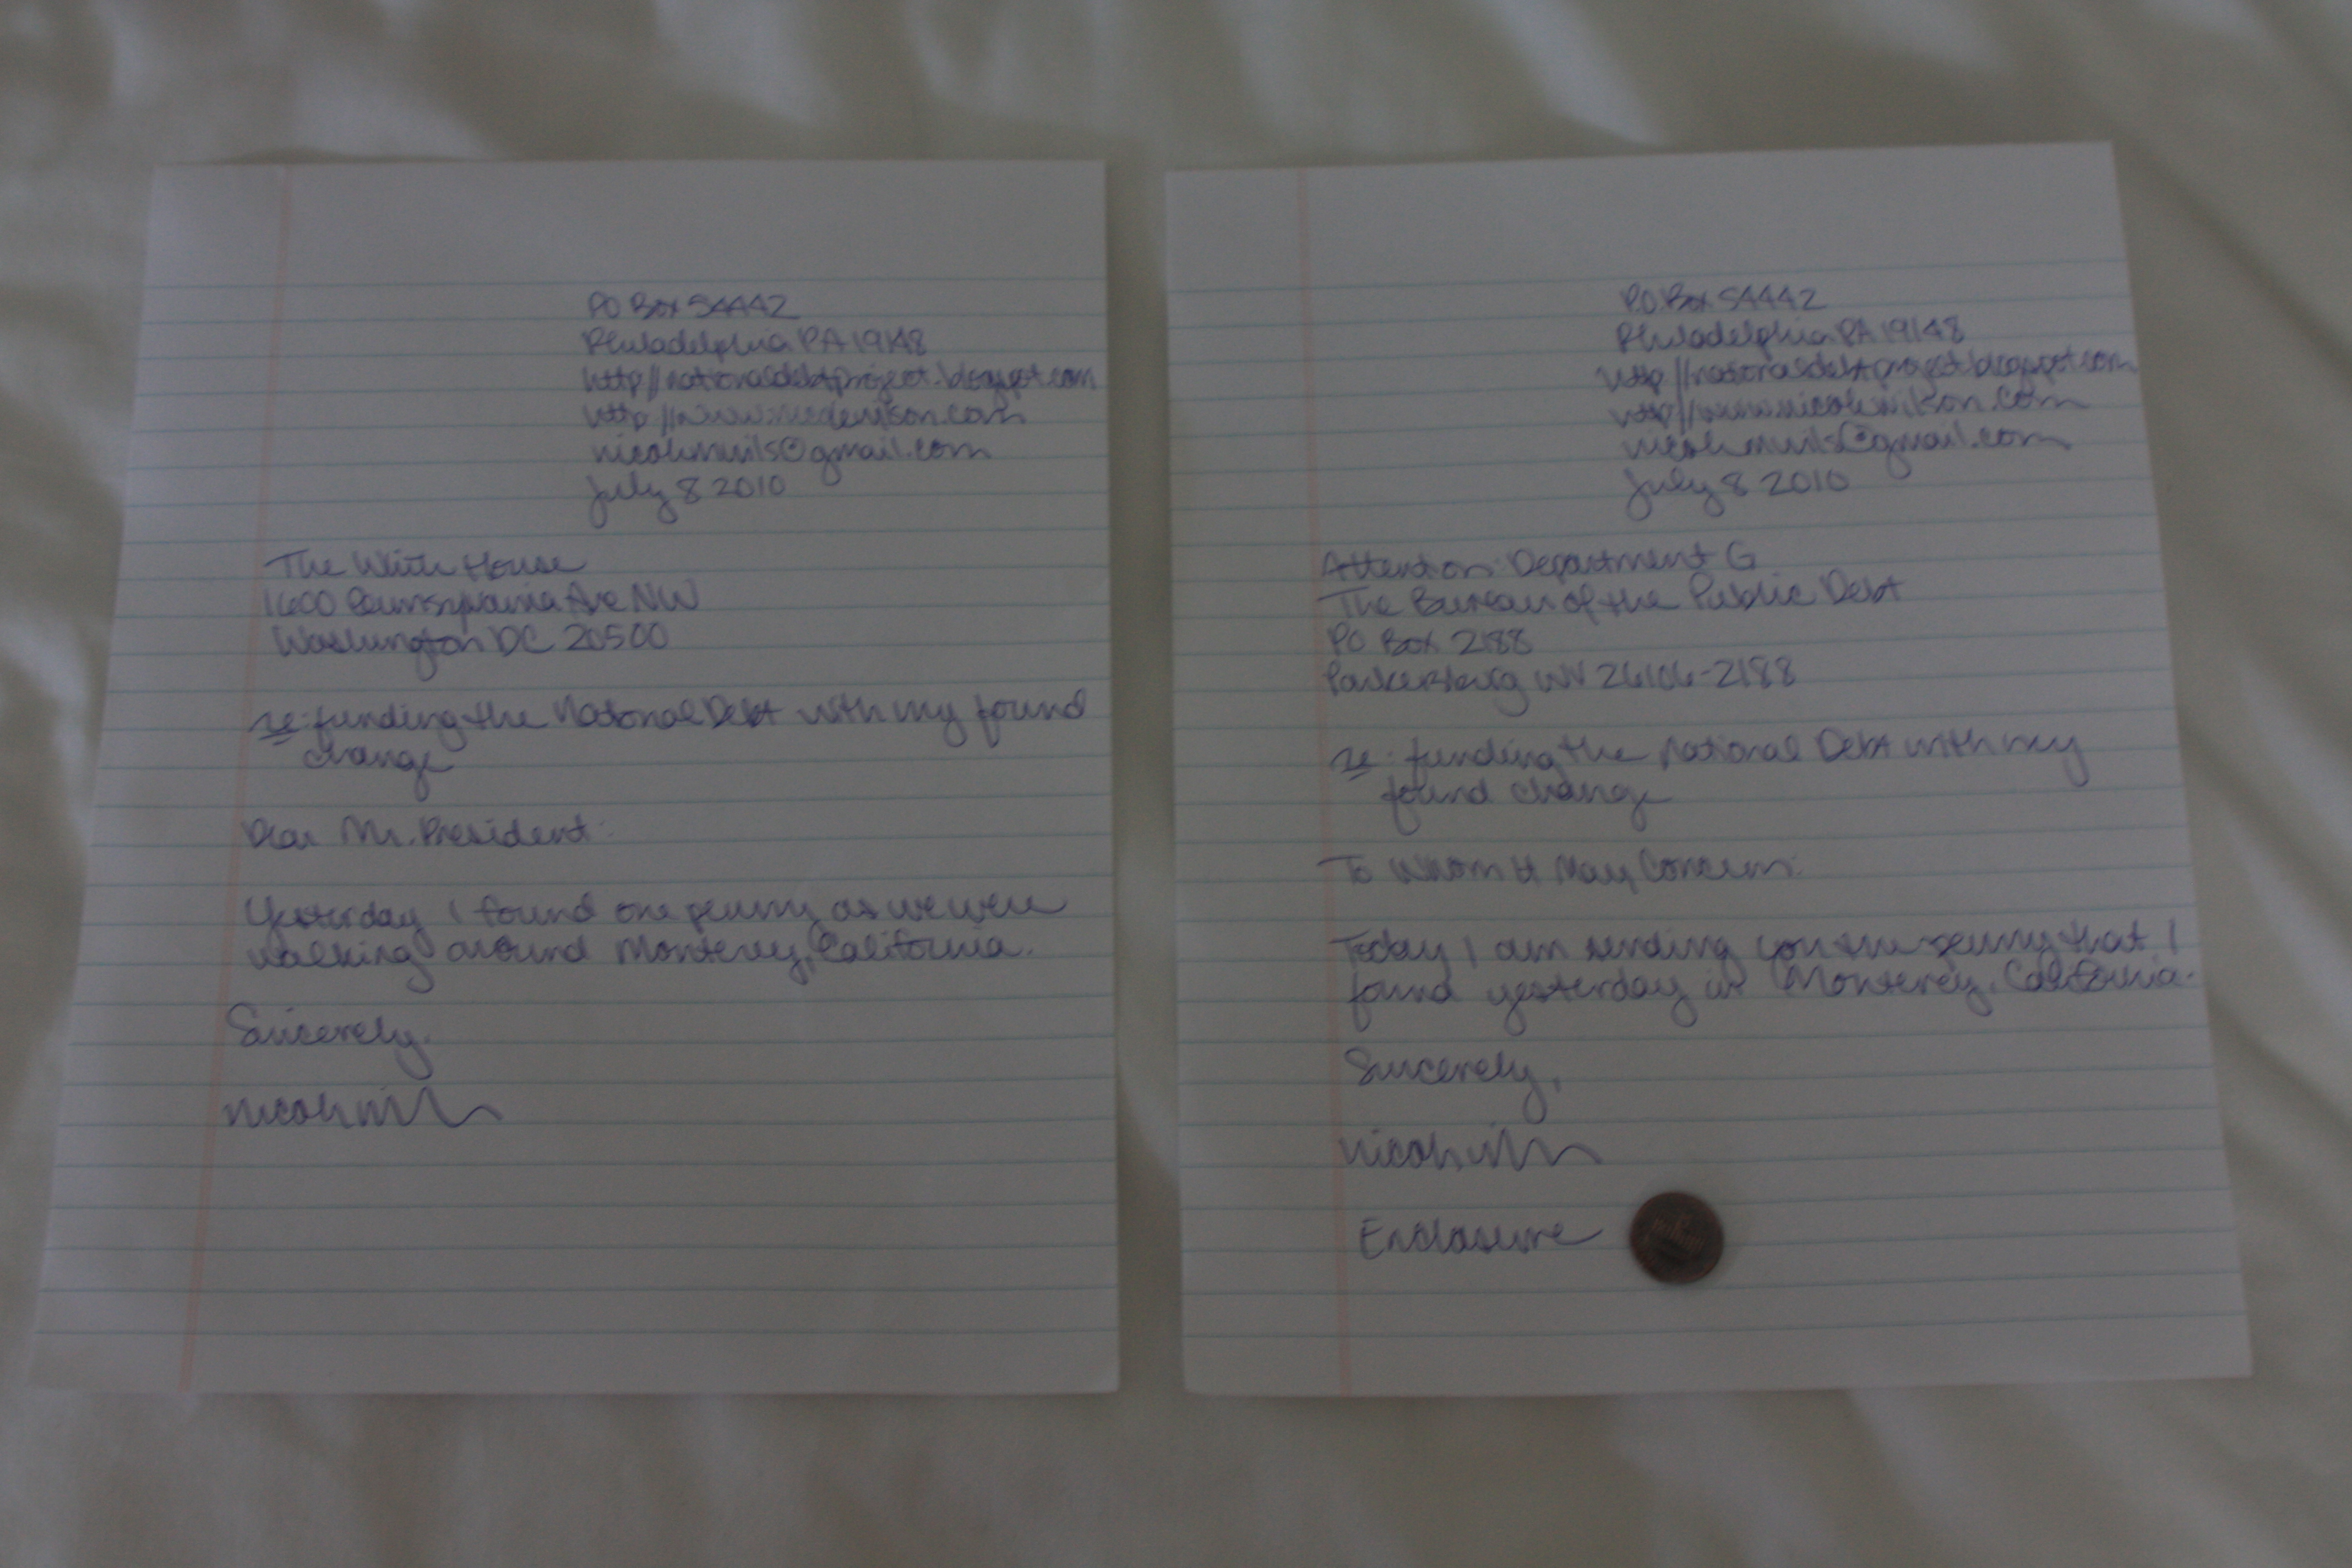 PO Box 54442
Philadelphia PA 19148
http://nationaldebtproject.blogspot.com
July 8 2010
The White House
1600 Pennsylvania Ave NW
Washington DC 20500
re: funding the National Debt with my found
change
Dear Mr. President:
Yesterday I found one penny as we were
walking around Monterey, California.
Sincerely,
P.O. Box 54442
Philadelphia PA 19148
http://nationaldebtproject.blogspot.com
July 8 2010
Attention: Department G
The Bureau of the Public Debt
PO Box 2188
Parkersburg WV 26106-2188
re: funding the National Debt with my
found change
To Whom It May Concern:
Today I am sending you the penny that I
found yesterday in Monterey, California.
Sincerely,
Enclosure